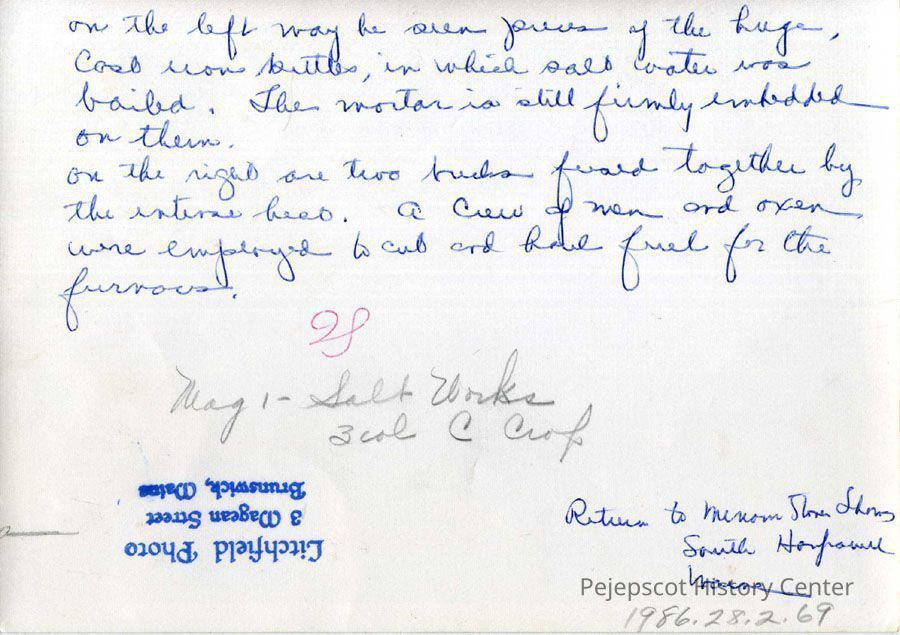 on the left may be seen pieces of the huge,
Cast iron kettles, in which salt water was
boiled. The mortar is still firmly embedded
on them.
on the right are two bricks fused together by
the intense heat. A Crew of men and oxen
were employed to cut and haul fuel for the
furnaces.
Mag 1 - Salt Works
3 col C Crop
Litchfield Photo
3 Magean Street
Brunswick, Maine
Return to Miriam Stover Thomas
South Harpswell
Maine
Pejepscot History Center
1986.28.2.69